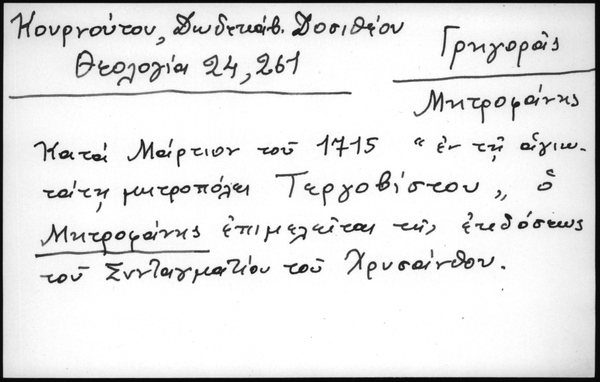 Κουρνούτου, Δωδεκάβ. Δοσιθέου
Θεολογία 24, 261
Γρηγορᾶς
Μητροφάνης
Κατά Μάρτιον τοῦ 1715 "ἐν τῇ ἁγιω-
τάτῃ μητροπόλει Τεργοβίστου„ ὁ
Μητροφάνης ἐπιμελεῖται τῆς ἐκδόσεως
τοῦ Συνταγματίου τοῦ Χρυσάνθου.